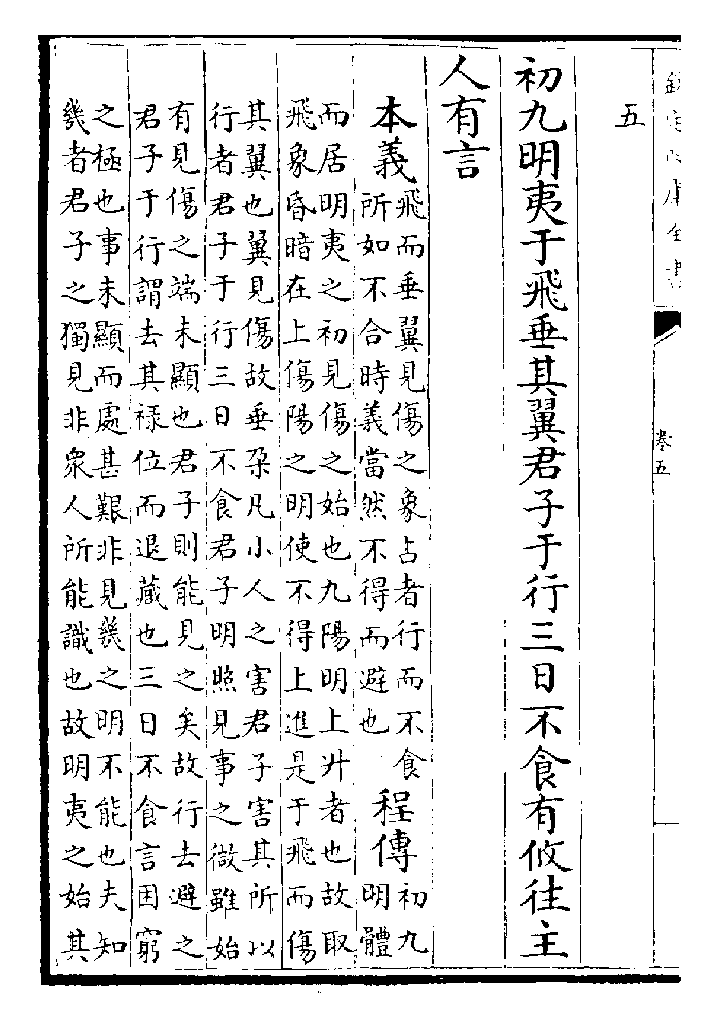 欽定四庫全書
卷五
五
初九明夷于飛垂其翼君子于行三日不食有攸往主
人有言
本義飛而垂翼見傷之象占者行而不食
所如不合時義當然不得而避也
程傳初九
明體
而居明夷之初見傷之始也九陽明上升者也故取
飛象昏暗在上傷陽之明使不得上進是于飛而傷
其翼也翼見傷故垂朶凡小人之害君子害其所以
行者君子于行三日不食君子明照見事之微雖始
有見傷之端未顯也君子則能見之矣故行去避之
君子于行謂去其祿位而退藏也三日不食言困窮
之極也事未顯而處甚艱非見幾之明不能也夫知
幾者君子之獨見非衆人所能識也故明夷之始其